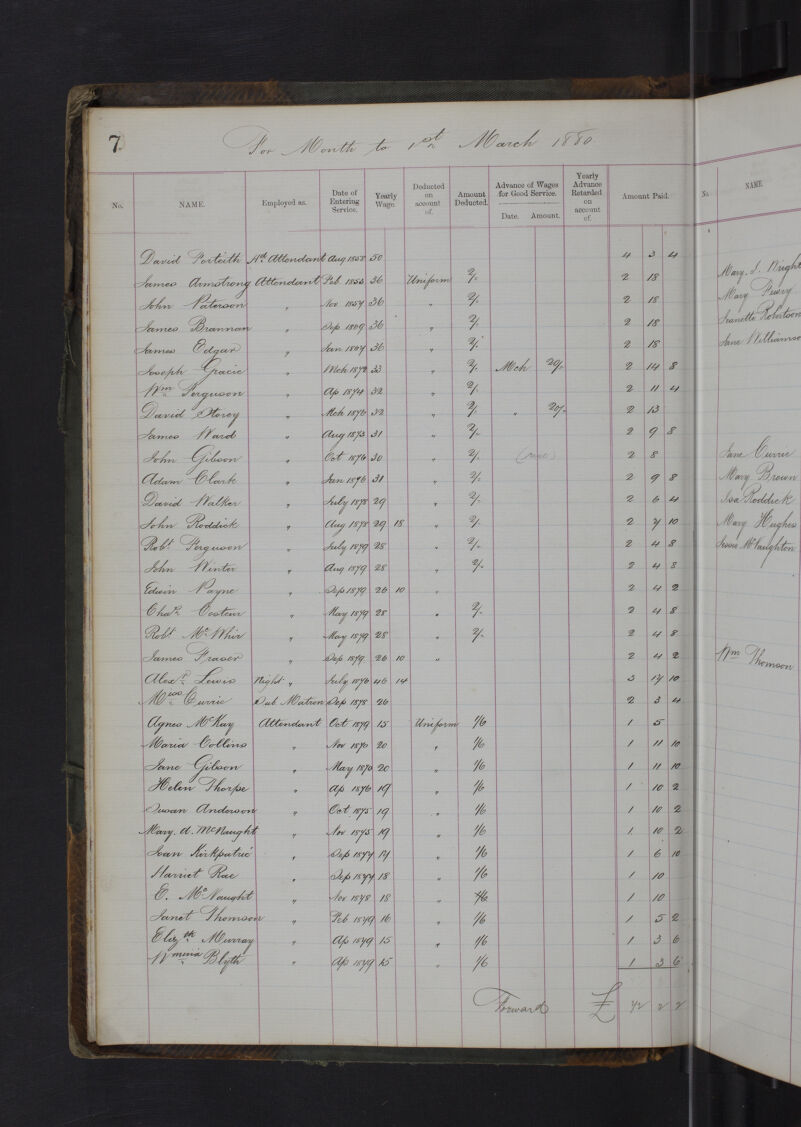 7.
For Month to 1st March 1880
No. NAME. Employed as. Date of Entering Service. Yearly Wage. Deducted on account of. Amount Deducted. Advance of Wages for Good Service. Date. Amount. Yearly Advance Retarded on account of. Amount Paid.
David Porteith Hd. Attendant Aug 1858 50 4 3 4
James Armstrong Attendant Feb 1853 36 Uniform 2/- 2 18
John Paterson " Nov 1857 36 " 2/- 2 18
James Brannan " Sep 1869 36 " 2/- 2 18
James Edgar " Jan 1867 36 " 2/- 2 18
Joseph Gracie " Mch 1872 33 " 2/- Mch 20/- 2 14 8
Wm. Ferguson " Ap 1874 32 " 2/- 2 11 4
David Storey " Mch 1876 32 " 2/- " 20/- 2 13
James Ward " Aug 1873 31 " 2/- 2 9 8
John Gibson " Oct 1876 30 " 2/- 2 8
Adam Clark " Jan 1876 31 " 2/- 2 9 8
David Walker " July 1878 29 " 2/- 2 6 4
John Roddick " Aug 1878 29 18 " 2/- 2 7 10
Robt. Ferguson " July 1879 28 " 2/- 2 4 8
John Winter " Aug 1879 28 " 2/- 2 4 8
Edwin Payne " Sep 1879 26 10 " 2 4 2
Chas. Costeur " May 1879 28 " 2/- 2 4 8
Robt. McWhir " May 1879 28 " 2/- 2 4 8
James Fraser " Sep 1879 26 10 " 2 4 2
Alexr. Lewis Night " July 1876 46 14 3 17 10
Miss Currie Sub Matron Sep 1878 26 2 3 4
Agnes McKay Attendant Oct 1879 15 Uniform 1/6 1 5
Maria Collins " Nov 1870 20 " 1/6 1 11 10
Jane Gibson " May 1870 20 " 1/6 1 11 10
Helen Thorpe " Ap 1876 19 " 1/6 1 10 2
Susan Anderson " Oct 1875 19 " 1/6 1 10 2
Mary. A. McNaught " Nov 1875 19 " 1/6 1 10 2
Joan Kirkpatric " Sep 1877 17 " 1/6 1 6 10
Harriet Rae " Sep 1877 18 " 1/6 1 10
E. McNaught " Nov 1878 18 " 1/6 1 10
Janet Thomson " Feb 1879 16 " 1/6 1 5 2
Elizth. Murray " Ap 1879 15 " 1/6 1 3 6
Wmina Blyth " Ap 1879 15 " 1/6 1 3 6
Forward £ 72 2 2
No. NAME.
Mary. J. Wright
Mary
Jeanette Robertson
Jane Williamso
Jane Currie
Mary Brown
Isa Roddick
Mary Hughes
Jessie McNaughton
Wm Thomson